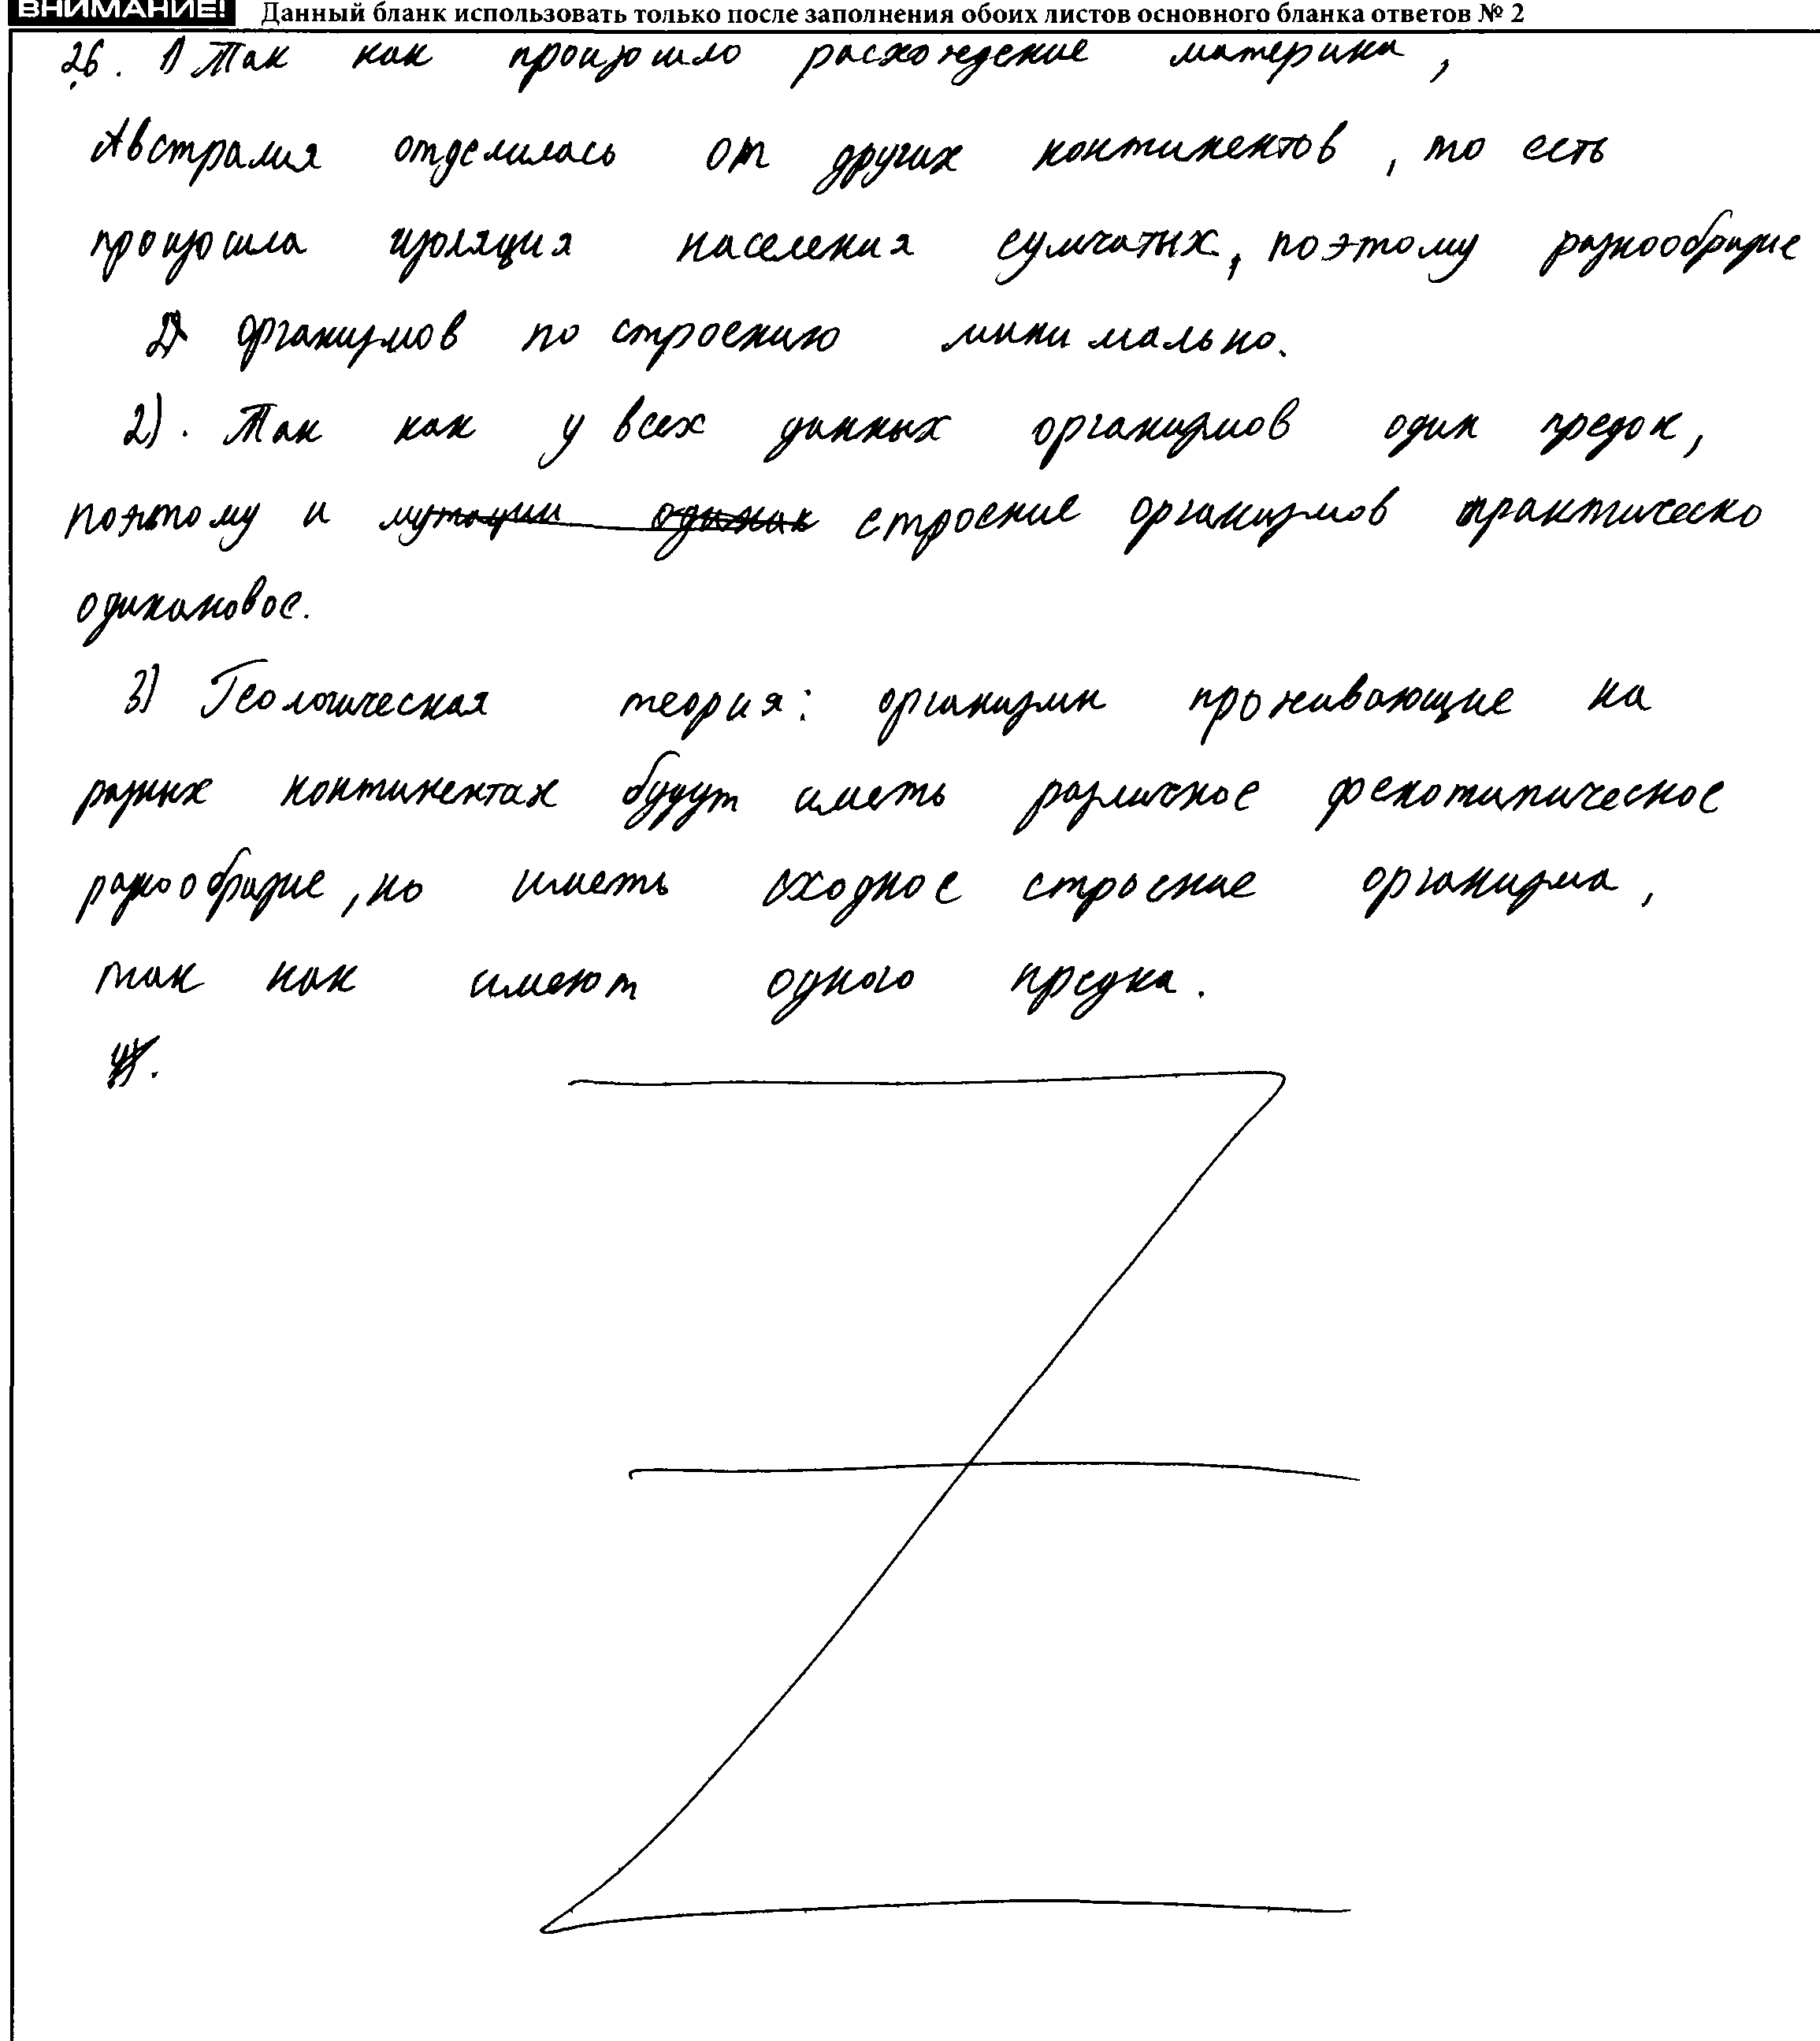 ВНИМАНИЕ! Данный бланк использовать только после заполнения обоих листов основного бланка ответов № 2
26. 1) Так как произошло расхождение материка,
Австралия отделилась от других континентов, то есть
произошла изоляция населения сумчатых, поэтому разнообразие
организмов по строению минимально.
2). Так как у всех данных организмов один предок,
поэтому и мутации одинак строение организмов практическо
одинаковое.
3) Геологическая теория: организмы проживающие на
разных континентах будут иметь различное фенотипическое
разнообразие, но иметь сходное строение организма,
так как имеют одного предка.